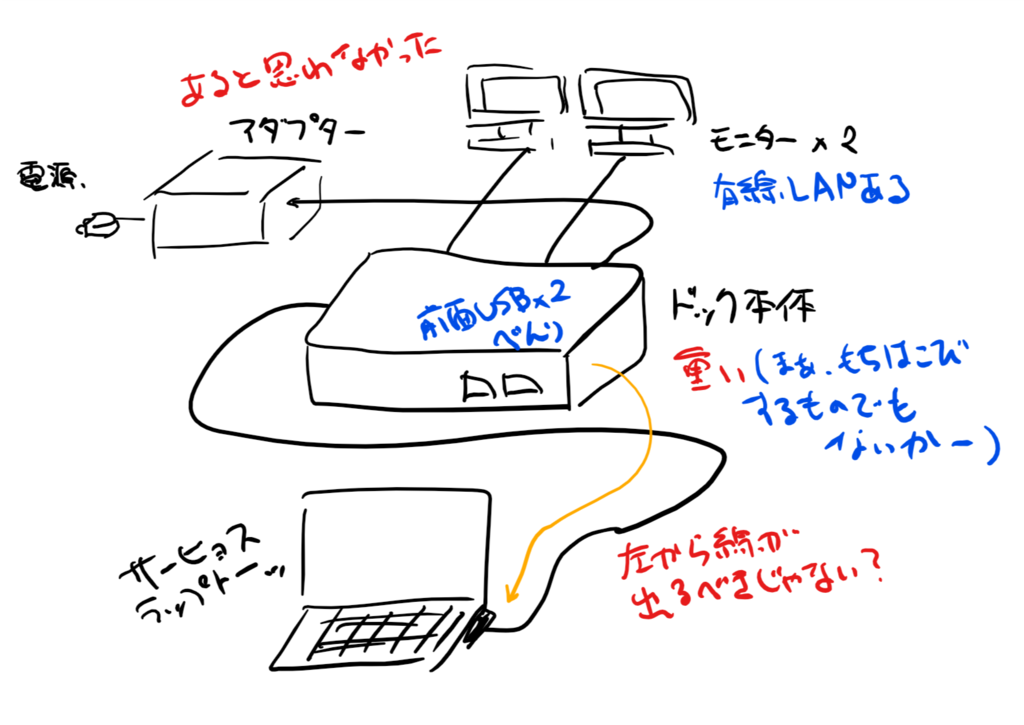 あると思わなかった
アダプター
電源、
モニター×2
有線LANある
前面USB×2
べんり
ドック本体
重い(まぁ、もちはこび
するものでも
ないかー)
左から線が
出るべきじゃない?
ラップトー